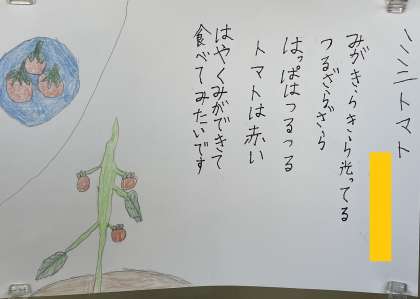 ミニトマト
みがきらきら光ってる
つるざらざら
はっぱはつるつる
トマトは赤い
はやくみができて
食べてみたいです